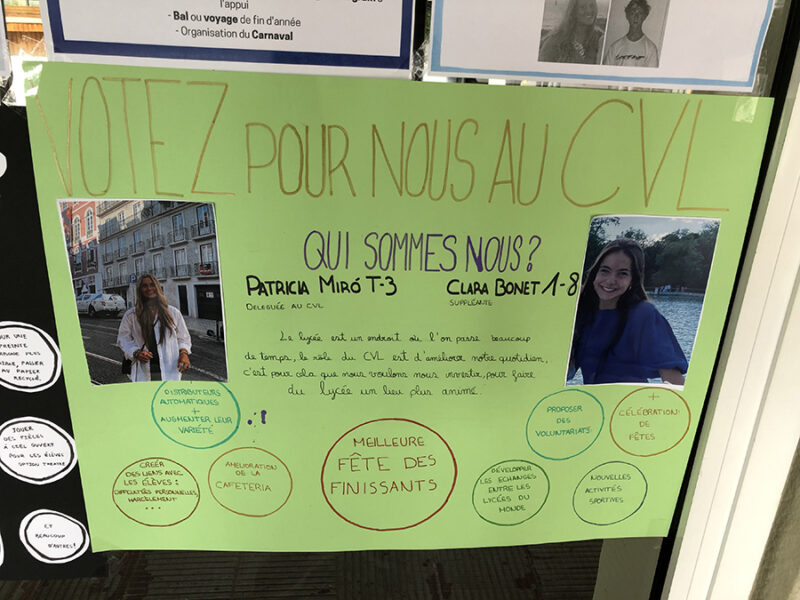 l'appui
- Bal ou voyage de fin d'année
- Organisation du Carnaval
VOTEZ POUR NOUS AU CVL
QUI SOMMES NOUS?
PATRICIA MIRÓ T-3
DELEGUÉE AU CVL
CLARA BONET 1-8
SUPPLÉANTE
Le lycée est un endroit où l'on passe beaucoup
de temps, le rôle du CVL est d'améliorer notre quotidien,
c'est pour cela que nous voulons nous investir, pour faire
du lycée un lieu plus animé.
DISTRIBUTEURS
AUTOMATIQUES
+
AUGMENTER LEUR
VARIÉTÉ
PROPOSER
DES
VOLONTARIATS
+
CÉLÉBRATION
DE
FÊTES
CRÉER
DES LIENS AVEC
LES ÉLÈVES:
DIFFICULTÉS PERSONNELLES,
HARCÈLEMENT
...
AMELIORATION
DE LA
CAFETERIA
MEILLEURE
FÊTE DES
FINISSANTS
DÉVELOPPER
LES ECHANGES
ENTRE LES
LYCÉES DU
MONDE
NOUVELLES
ACTIVITÉS
SPORTIVES
PLUS,
AU PAPIER
RECYCLÉ.
JOUER
DES PIÈCES
À CIEL OUVERT
POUR LES ÉLÈVES
OPTION THEATRE
ET
BEAUCOUP
D'AUTRES!